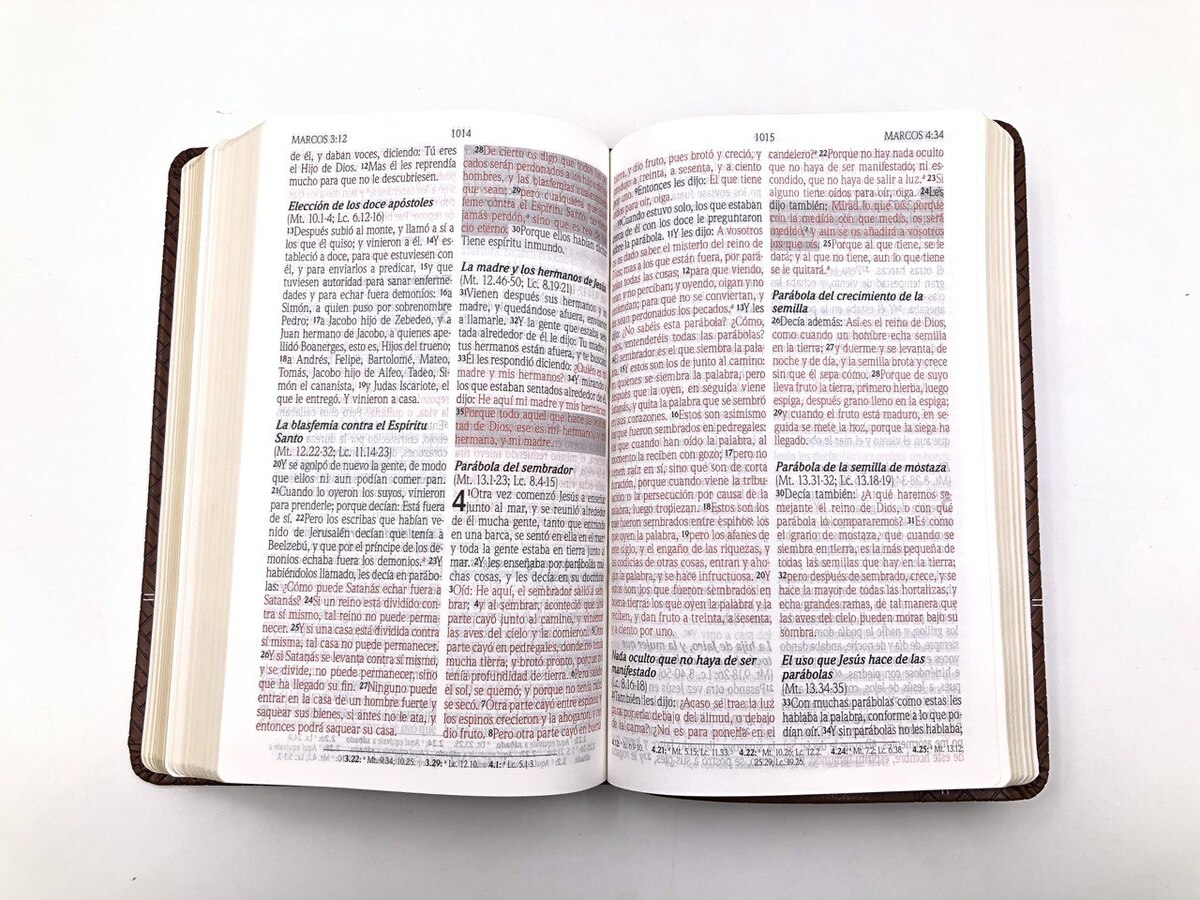 MARCOS 3:12
1014
de él, y daban voces, diciendo: Tú eres
el Hijo de Dios. 12Mas él les reprendía
mucho para que no le descubriesen.
Elección de los doce apóstoles
(Mt. 10.1-4; Lc. 6.12-16)
13Después subió al monte, y llamó a sí a
los que él quiso; y vinieron a él. 14Y es-
tableció a doce, para que estuviesen con
él, y para enviarlos a predicar, 15y que
tuviesen autoridad para sanar enferme-
dades y para echar fuera demonios: 16a
Simón, a quien puso por sobrenombre
Pedro; 17a Jacobo hijo de Zebedeo, y a
Juan hermano de Jacobo, a quienes ape-
llidó Boanerges, esto es, Hijos del trueno;
18a Andrés, Felipe, Bartolomé, Mateo,
Tomás, Jacobo hijo de Alfeo, Tadeo, Si-
món el cananista, 19y Judas Iscariote, el
que le entregó. Y vinieron a casa.
La blasfemia contra el Espíritu
Santo
(Mt. 12.22-32; Lc. 11.14-23)
20Y se agolpó de nuevo la gente, de modo
que ellos ni aun podían comer pan.
21Cuando lo oyeron los suyos, vinieron
para prenderle; porque decían: Está fuera
de sí. 22Pero los escribas que habían ve-
nido de Jerusalén decían que tenía a
Beelzebú, y que por el príncipe de los de-
monios echaba fuera los demonios.ª 23Y
habiéndolos llamado, les decía en parábo-
las: ¿Cómo puede Satanás echar fuera a
Satanás? 24Si un reino está dividido con-
tra sí mismo, tal reino no puede permane-
cer. 25Y si una casa está dividida contra
sí misma, tal casa no puede permanecer.
26Y si Satanás se levanta contra sí mismo,
y se divide, no puede permanecer, sino
que ha llegado su fin. 27Ninguno puede
entrar en la casa de un hombre fuerte y
saquear sus bienes, si antes no le ata, y
entonces podrá saquear su casa.
28De cierto os digo que todos
cados serán perdonados a
hombres, y las blasfemias cualesquiera
que sean; 29pero cualquiera que
feme contra el Espíritu Santo,
jamás perdón,ª sino que es reo de
cio eterno. 30Porque ellos habían dicho:
Tiene espíritu inmundo.
La madre y los hermanos de Jesús
(Mt. 12.46-50; Lc. 8.19-21)
31Vienen después sus hermanos y su
madre, y quedándose afuera, enviaron
a llamarle. 32Y la gente que estaba sen-
tada alrededor de él le dijo: Tu madre y
tus hermanos están afuera, y te buscan.
33Él les respondió diciendo: ¿Quién es mi
madre y mis hermanos? 34Y mirando a
los que estaban sentados alrededor de él,
dijo: He aquí mi madre y mis hermanos.
35Porque todo aquel que hace la volun-
tad de Dios, ese es mi hermano, y mi
hermana, y mi madre.
Parábola del sembrador
(Mt. 13.1-23; Lc. 8.4-15)
4 1Otra vez comenzó Jesús a enseñar
junto al mar, y se reunió alrededor
de él mucha gente, tanto que entrando
en una barca, se sentó en ella en el mar;
y toda la gente estaba en tierra junto al
mar. 2Y les enseñaba por parábolas mu-
chas cosas, y les decía en su doctrina:
3Oíd: He aquí, el sembrador salió a sem-
brar; 4y al sembrar, aconteció que una
parte cayó junto al camino, y vinieron
las aves del cielo y la comieron. 5Otra
parte cayó en pedregales, donde no tenía
mucha tierra; y brotó pronto, porque no
tenía profundidad de tierra. 6Pero salido
el sol, se quemó; y porque no tenía raíz,
se secó. 7Otra parte cayó entre espinos; y
los espinos crecieron y la ahogaron, y no
dio fruto. 8Pero otra parte cayó en buena
3.22: ª Mt. 9.34; 10.25. 3.29: ª Lc. 12.10. 4.1: ª Lc. 5.1-3.
1015
MARCOS 4:34
tierra, y dio fruto, pues brotó y creció, y
produjo a treinta, a sesenta, y a ciento
por uno. 9Entonces les dijo: El que tiene
oídos para oír, oiga.
10Cuando estuvo solo, los que estaban
cerca de él con los doce le preguntaron
sobre la parábola. 11Y les dijo: A vosotros
os es dado saber el misterio del reino de
Dios; mas a los que están fuera, por pará-
bolas todas las cosas; 12para que viendo,
vean y no perciban; y oyendo, oigan y no
entiendan; para que no se conviertan, y
les sean perdonados los pecados.ª 13Y les
dijo: ¿No sabéis esta parábola? ¿Cómo,
pues, entenderéis todas las parábolas?
14El sembrador es el que siembra la pala-
bra. 15Y estos son los de junto al camino:
en quienes se siembra la palabra, pero
después que la oyen, en seguida viene
Satanás, y quita la palabra que se sembró
en sus corazones. 16Estos son asimismo
los que fueron sembrados en pedregales:
los que cuando han oído la palabra, al
momento la reciben con gozo; 17pero no
tienen raíz en sí, sino que son de corta
duración, porque cuando viene la tribula-
ción o la persecución por causa de la
palabra, luego tropiezan. 18Estos son los
que fueron sembrados entre espinos: los
que oyen la palabra, 19pero los afanes de
este siglo, y el engaño de las riquezas, y
las codicias de otras cosas, entran y aho-
gan la palabra, y se hace infructuosa. 20Y
estos son los que fueron sembrados en
buena tierra: los que oyen la palabra y la
reciben, y dan fruto a treinta, a sesenta,
y a ciento por uno.
Nada oculto que no haya de ser
manifestado
(Lc. 8.16-18)
21También les dijo: ¿Acaso se trae la luz
para ponerla debajo del almud, o debajo
de la cama? ¿No es para ponerla en el
candelero?ª 22Porque no hay nada oculto
que no haya de ser manifestado; ni es-
condido, que no haya de salir a luz.ª 23Si
alguno tiene oídos para oír, oiga. 24Les
dijo también: Mirad lo que oís; porque
con la medida con que medís, os será
medido,ª y aun se os añadirá a vosotros
los que oís. 25Porque al que tiene, se le
dará; y al que no tiene, aun lo que tiene
se le quitará.ª
Parábola del crecimiento de la
semilla
26Decía además: Así es el reino de Dios,
como cuando un hombre echa semilla
en la tierra; 27y duerme y se levanta, de
noche y de día, y la semilla brota y crece
sin que él sepa cómo. 28Porque de suyo
lleva fruto la tierra, primero hierba, luego
espiga, después grano lleno en la espiga;
29y cuando el fruto está maduro, en se-
guida se mete la hoz, porque la siega ha
llegado.
Parábola de la semilla de mostaza
(Mt. 13.31-32; Lc. 13.18-19)
30Decía también: ¿A qué haremos se-
mejante el reino de Dios, o con qué
parábola lo compararemos? 31Es como
el grano de mostaza, que cuando se
siembra en tierra, es la más pequeña de
todas las semillas que hay en la tierra;
32pero después de sembrado, crece, y se
hace la mayor de todas las hortalizas, y
echa grandes ramas, de tal manera que
las aves del cielo pueden morar bajo su
sombra.
El uso que Jesús hace de las
parábolas
(Mt. 13.34-35)
33Con muchas parábolas como estas les
hablaba la palabra, conforme a lo que po-
dían oír. 34Y sin parábolas no les hablaba;
4.12: ª Is. 6.9-10. 4.21: ª Mt. 5.15; Lc. 11.33. 4.22: ª Mt. 10.26; Lc. 12.2. 4.24: ª Mt. 7.2; Lc. 6.38. 4.25: ª Mt. 13.12;
25.29; Lc. 19.26.